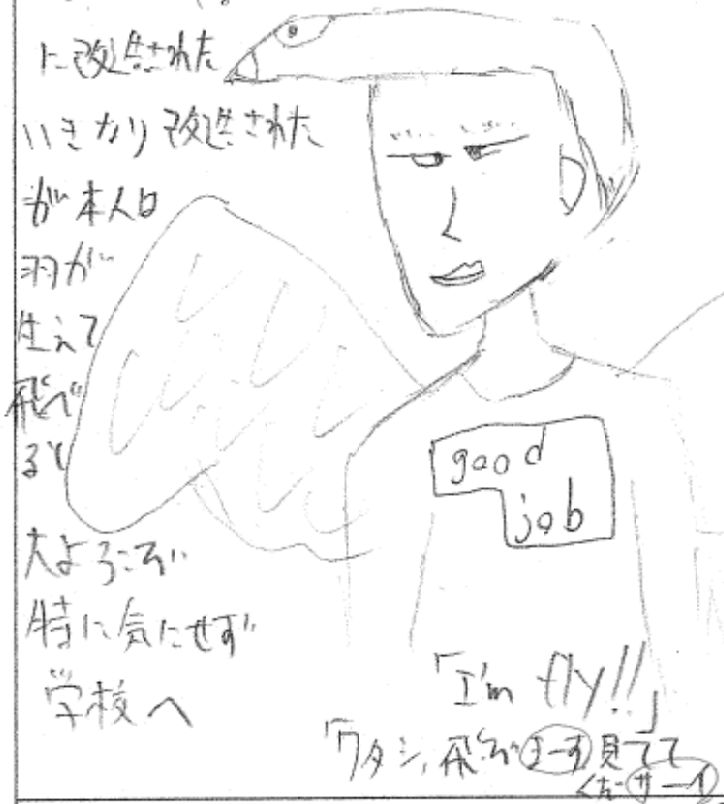 に改造された
いきなり改造された
が本人は
羽が
生えて
飛べ
ると
大よろこび
特に気にせず
学校へ
good
job
「I'm fly!!」
「ワタシ、飛びまーす見てて
くださーイ